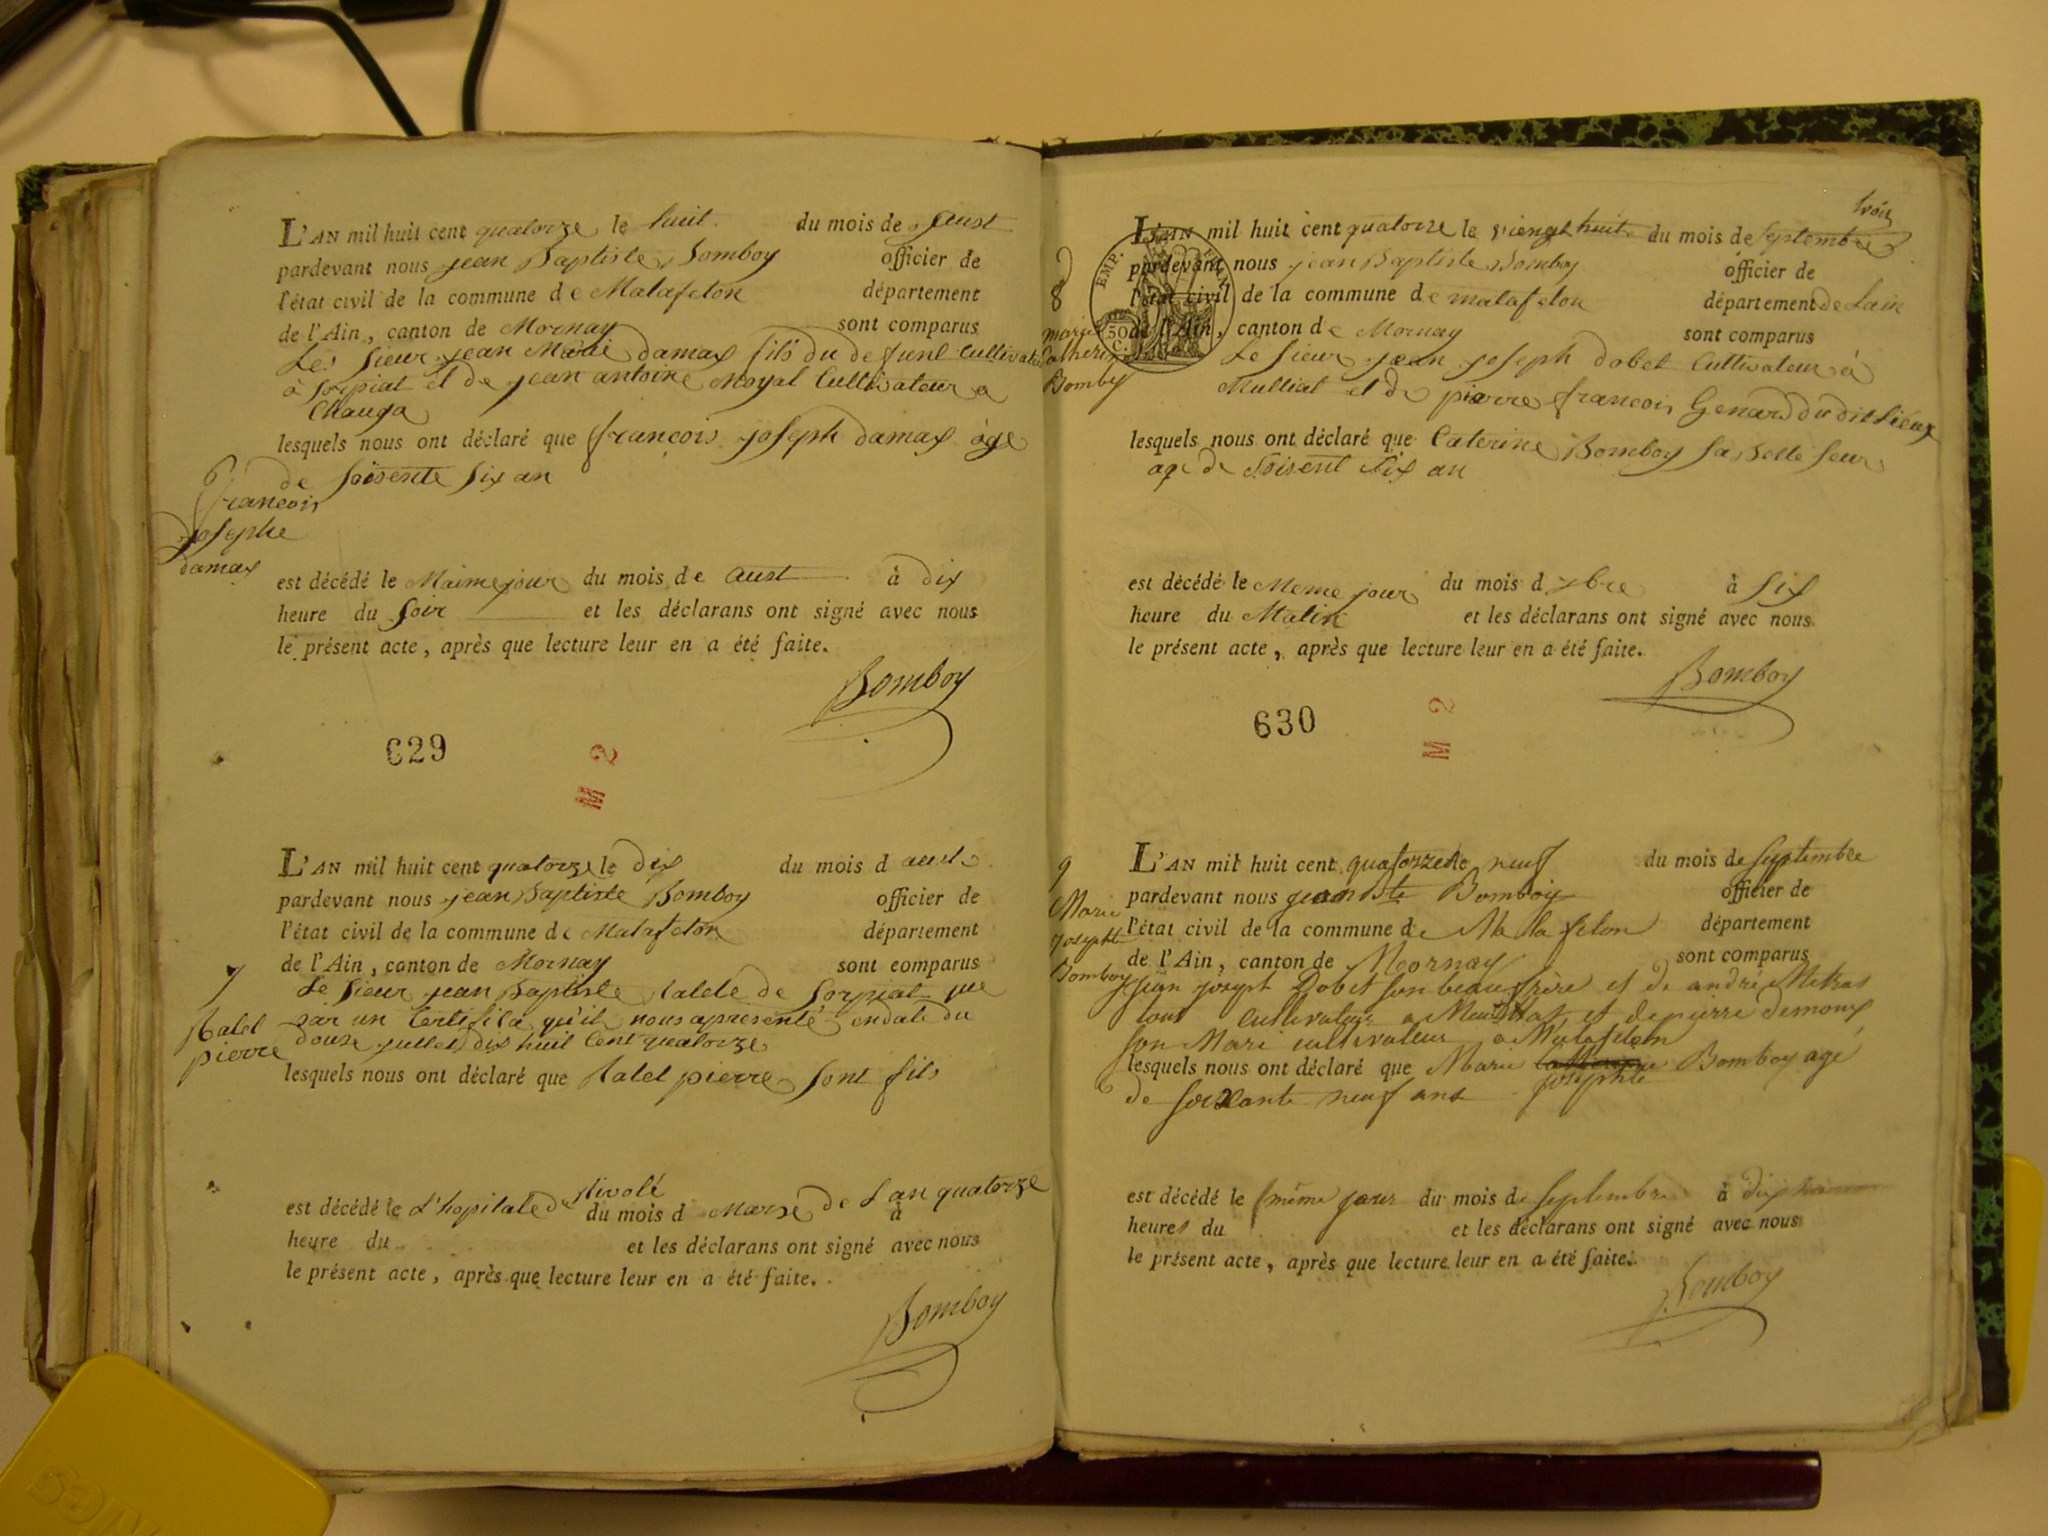 L'AN mil huit cent quatorze le huit du mois de Aust
pardevant nous jean Baptiste Bomboy officier de
l'état civil de la commune de Matafelon département
de l'Ain, canton de Mornay sont comparus
Les sieur jean Marie damax fils du defunt Cultivateur
à Sorpiat et de jean antoine Moyal Cultivateur a
Chauga
lesquels nous ont déclaré que françois joseph damax age
de soisente six an
6
francois
josephe
damax
est décédé le Maime jour du mois de Aust à dix
heure du soir et les déclarans ont signé avec nous
le présent acte, après que lecture leur en a été faite.
Bomboy
629
M 2
L'AN mil huit cent quatorze le dix du mois d aust
pardevant nous jean Baptiste Bomboy officier de
l'état civil de la commune de Matafelon département
de l'Ain, canton de Mornay sont comparus
7
Le Sieur jean Baptiste de Sorpiat que
par un Certifica qu'il nous apresenté endate du
douse jullet dix huit Cent quatorze
pierre
lesquels nous ont déclaré que pierre sont fils
est décédé le L'hopitale de tivolé du mois d Marse de Lan quatorze à
heure du et les déclarans ont signé avec nous
le présent acte, après que lecture leur en a été faite.
Bomboy
trois
L'AN mil huit cent quatorze le vienght huit du mois de septembre
pardevant nous jean Baptiste Bomboy officier de
l'état civil de la commune de matafelon département de Lain
de l'Ain, canton de Mornay sont comparus
EMP.
50
C.
8
marie
Catherine
Bomby
Le Sieur jean joseph dobet Cultivateur à
Multiat et de pierre francois Genard du dit Lieux
lesquels nous ont déclaré que Caterine Bomboy sa belle seur
age de soisent six an
est décédé le Meme jour du mois d 7bre à six
heure du Matin et les déclarans ont signé avec nous
le présent acte, après que lecture leur en a été faite.
Bomboy
630
M 2
L'AN mil huit cent quatorze le neuf du mois de septembre
pardevant nous jean bte Bomboy officier de
l'état civil de la commune de Matafelon département
de l'Ain, canton de Mornay sont comparus
9
Marie
josephte
Bomboy
jean joseph Dobet son beau frère et de andré Metras
tous cultivateurs a et de pierre demoux
son Mari cultivateur a Matafelon
lesquels nous ont déclaré que Marie josephte Bomboy agé
de soixante neuf ans
est décédé le même jour du mois de septembre à dix
heures du et les déclarans ont signé avec nous
le présent acte, après que lecture leur en a été faite.
Bomboy